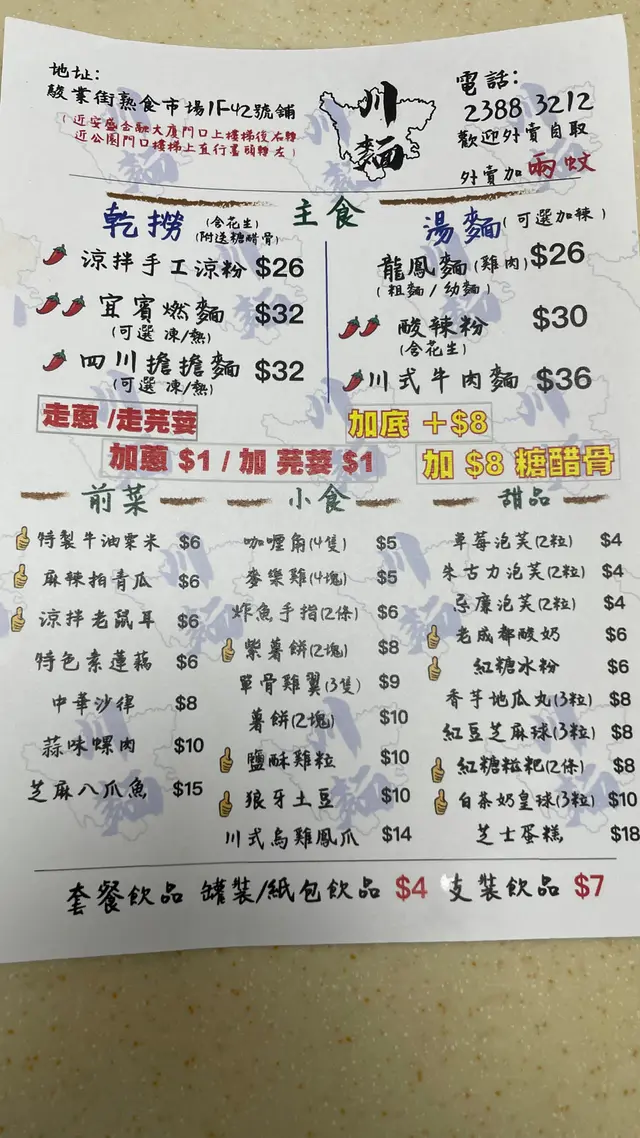 地址:
駿業街熟食市場1F42號舖
(近安盛金融大廈門口上樓梯後右轉
近公園門口樓梯上直行盡頭轉左)
川麵
電話:
2388 3212
歡迎外賣自取
外賣加兩蚊
主食
乾撈 (含花生)
(附送糖醋骨)
涼拌手工涼粉 $26
宜賓燃麵 $32
(可選 凍/熱)
四川擔擔麵 $32
(可選 凍/熱)
湯麵(可選加辣)
龍鳳麵(雞肉) $26
(粗麵/幼麵)
酸辣粉 $30
(含花生)
川式牛肉麵 $36
走蔥 /走芫荽
加底 +$8
加蔥 $1 / 加 芫荽 $1
加 $8 糖醋骨
前菜
特製牛油粟米 $6
麻辣拍青瓜 $6
涼拌老鼠耳 $6
特色素蓮藕 $6
中華沙律 $8
蒜味螺肉 $10
芝麻八爪魚 $15
小食
咖喱角(4隻) $5
麥樂雞(4塊) $5
炸魚手指(2條) $6
紫薯餅(2塊) $8
單骨雞翼(3隻) $9
薯餅(2塊) $10
鹽酥雞粒 $10
狼牙土豆 $10
川式烏雞鳳爪 $14
甜品
草莓泡芙(2粒) $4
朱古力泡芙(2粒) $4
忌廉泡芙(2粒) $4
老成都酸奶 $6
紅糖冰粉 $6
香芋地瓜丸(3粒) $8
紅豆芝麻球(3粒) $8
紅糖粒粑(2條) $8
白茶奶皇球(3粒) $10
芝士蛋糕 $18
套餐飲品 罐裝/紙包飲品 $4 支裝飲品 $7